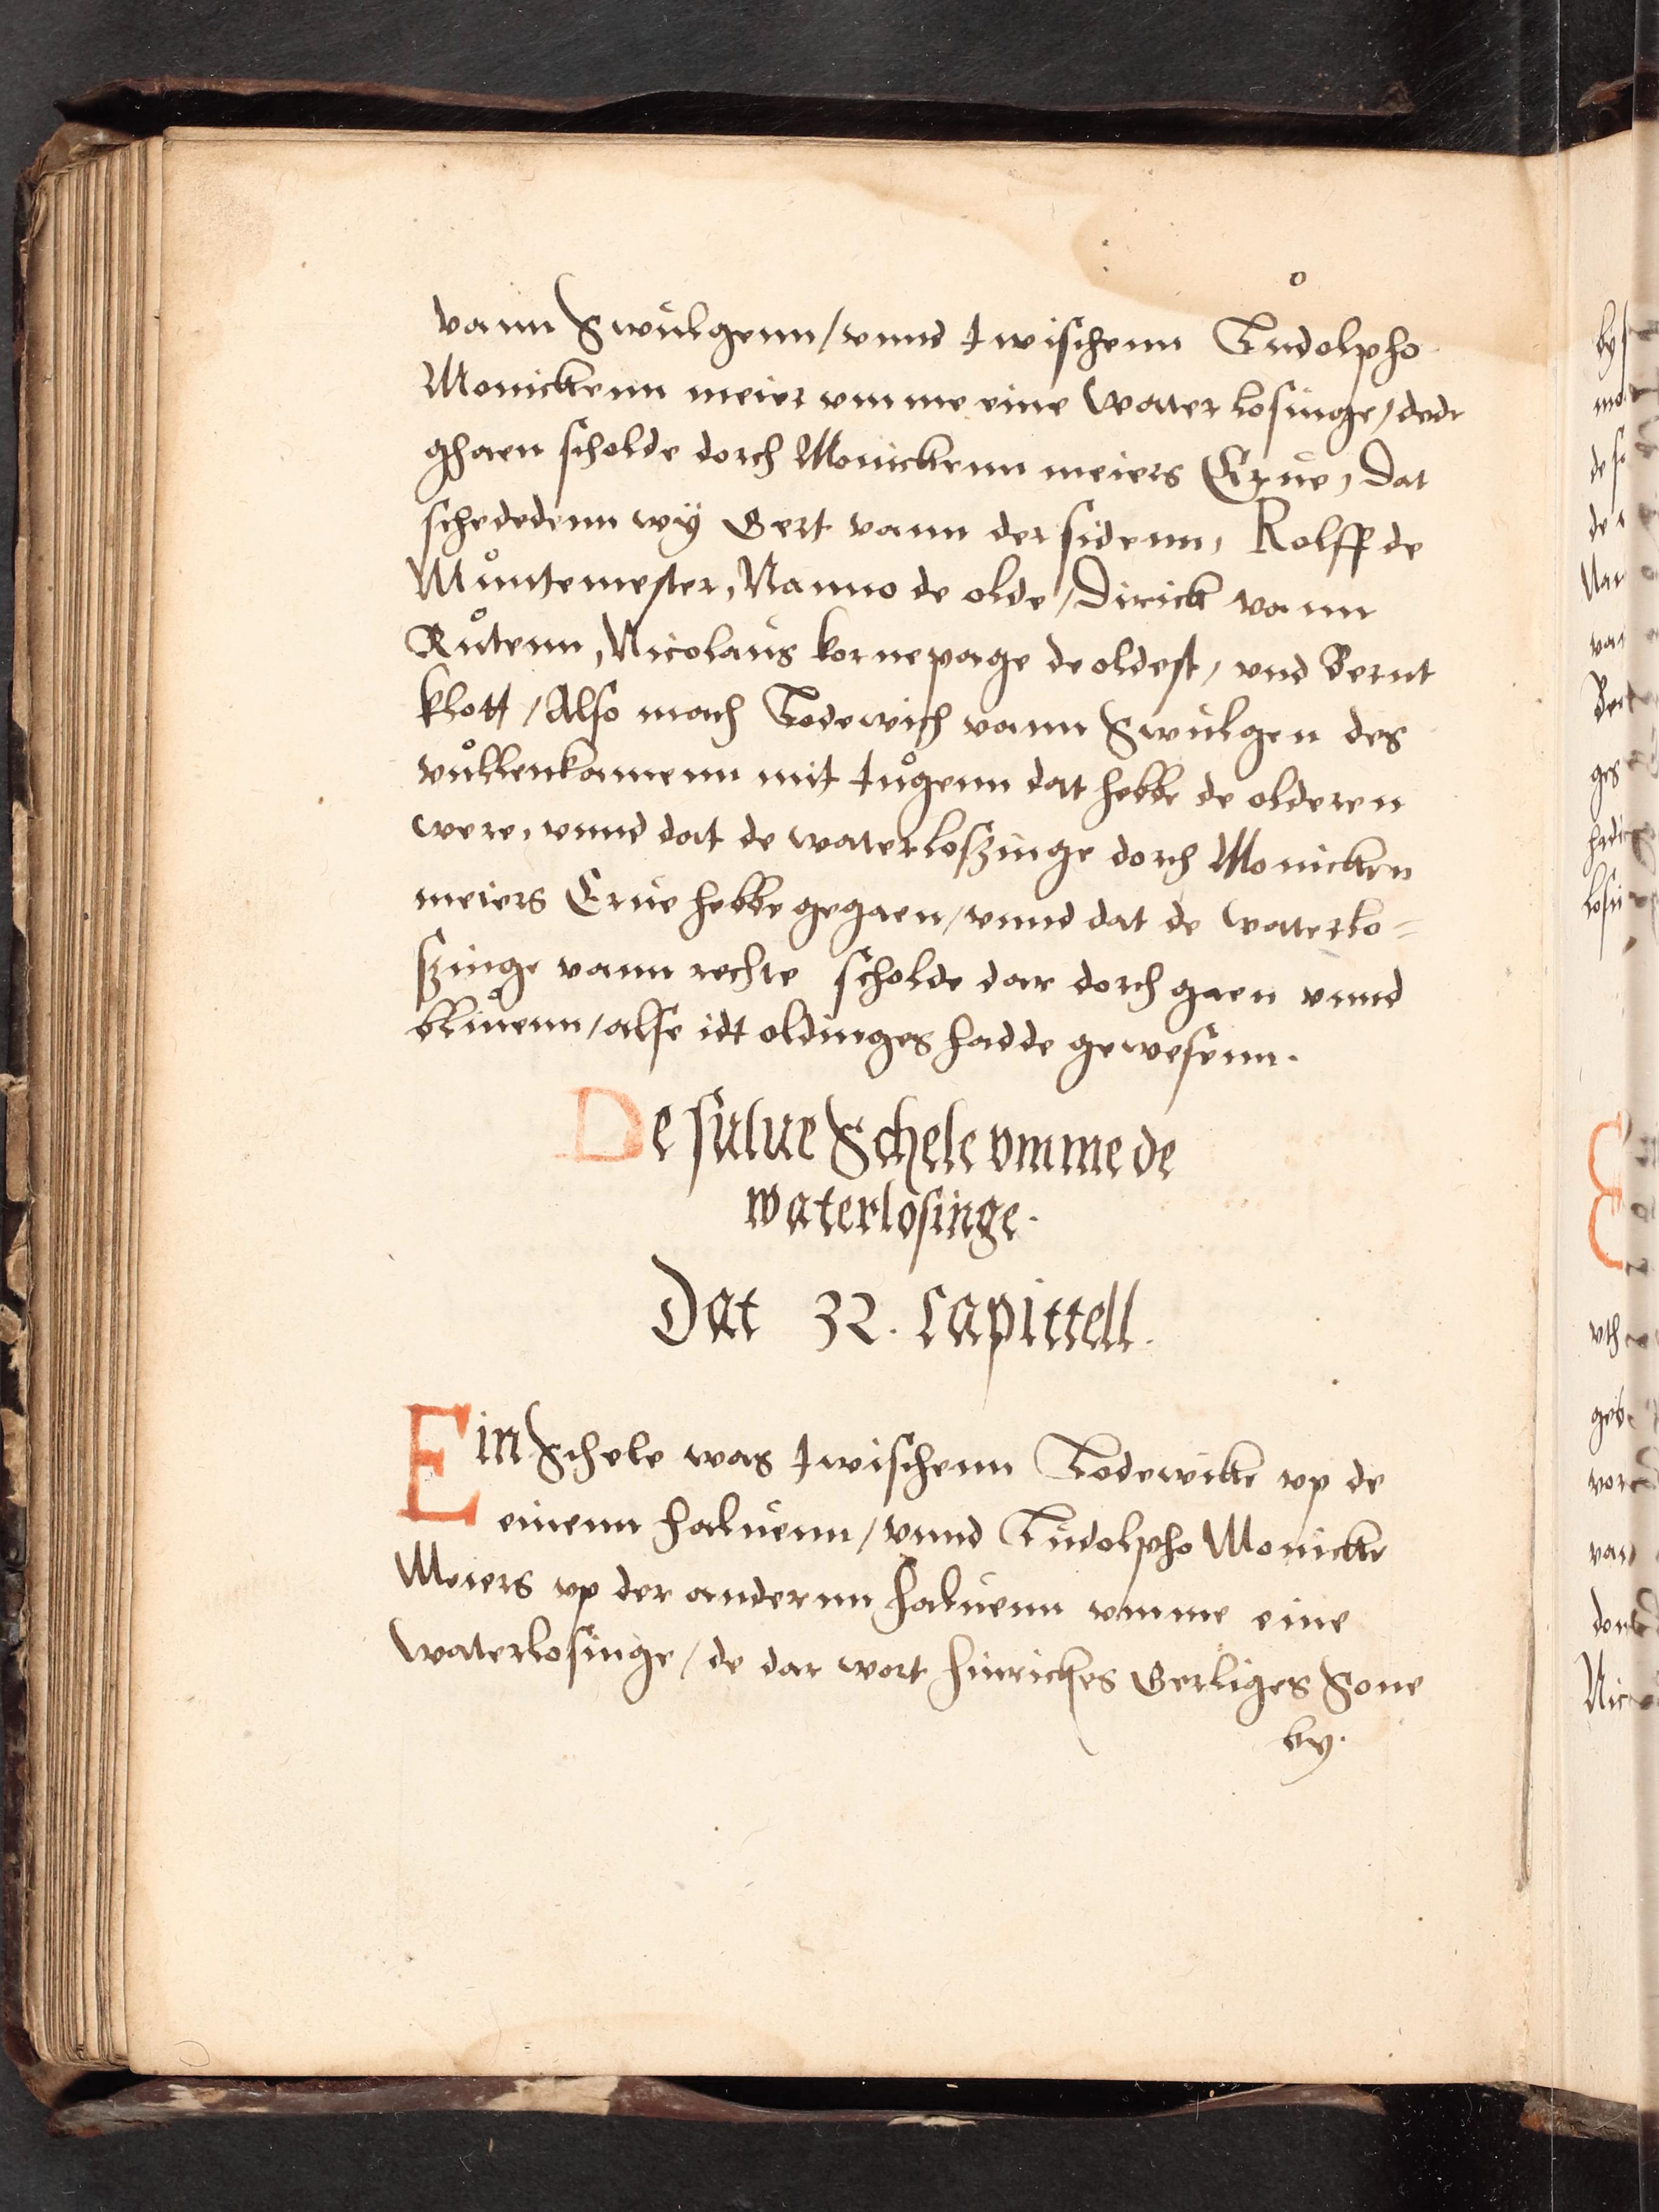 vann Swulgenn / vnnd twischenn Ludolpho
Monickenn meier vmme eine water losinge / dede
ghaen scholde dorch Monickenn meiers Erue, Dat
schededenn wÿ Gert vann der sidenn, Rolff de
Mů̊ntemester, Nanno de olde / Dirick vann
Růtenn, Nicolaus kornepage de oldest, vnd Bernt
klott / Also mach Lodewich vann Swulgen des
vůllenkamenn mit tůgenn dat hebbe de olderen
were, vnnd dat de waterloszinge dorch Monicken
meiers Erue hebbe gegaen / vnnd dat de waterlo=
szinge vann rechte scholde dar dorch gaen vnnd
bliuenn / alse idt oldinges hadde gewesenn.
De sulue Schele vmme de
waterlosinge.
Dat 32. Capittell.
Ein Schele was twischenn Lodewicke vp de
einenn haluenn / vnnd Ludolpho Monicke
Meiers vp der andernn haluenn vmme eine
waterlosinge / de dar wort hinrickes Gerliges Sone
by.